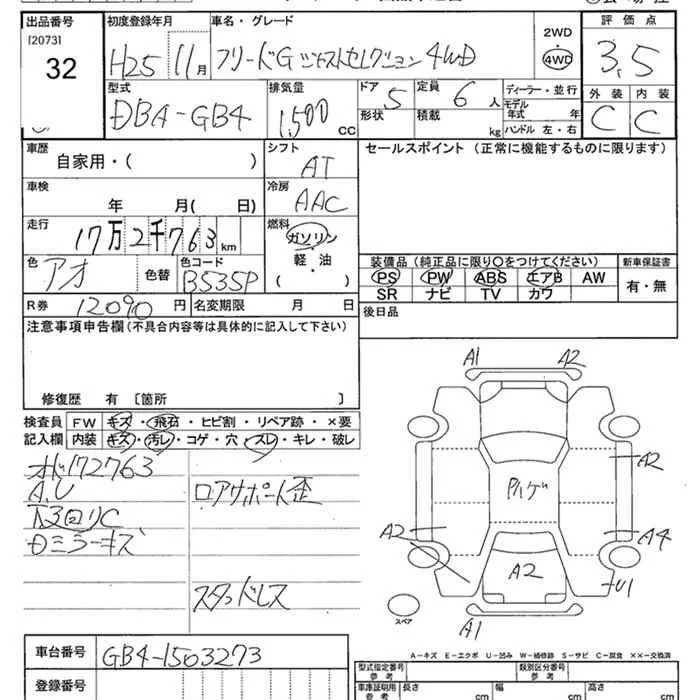 出品番号
[2073]
32
初度登録年月
H25 11月
車名・グレード
フリードG ジャストセレクション 4WD
2WD
4WD
評価点
3.5
外装 内装
C C
型式
DBA-GB4
排気量
1,500 cc
ドア
5
形状
定員
6 人
積載
kg
ディーラー・並行
モデル年式 年
ハンドル 左・右
車歴
自家用・( )
シフト
AT
セールスポイント (正常に機能するものに限ります)
車検
年 月( 日)
冷房
AAC
走行
17万2千763km
燃料
ガソリン
軽・油
( ・ )
色
アオ
色替
色コード
B535P
装備品 (純正品に限り○をつけてください)
PS PW ABS エアB AW
SR ナビ TV カワ
新車保証書
有・無
R券 12090 円
名変期限 月 日
後日品
注意事項申告欄 (不具合内容等は具体的に記入して下さい)
修復歴 有 [箇所 ]
検査員
記入欄
FW キズ・飛石・ヒビ割・リペア跡・×要
内装 キズ・汚レ・コゲ・穴・スレ・キレ・破レ
オド172763
A.U
下回りC
Dミラーキズ
ロアサポート歪
スタッドレス
A1 A2
A2
A2
A4
A2
U1
A1
スペア
A－キズ E－エクボ U－凹み W－補修跡 S－サビ C－腐食 ××－交換済
車台番号 GB4-1503273
登録番号
型式指定番号
参考
類別区分番号
参考
車庫証明用
参考
長さ cm
幅 cm
高さ cm